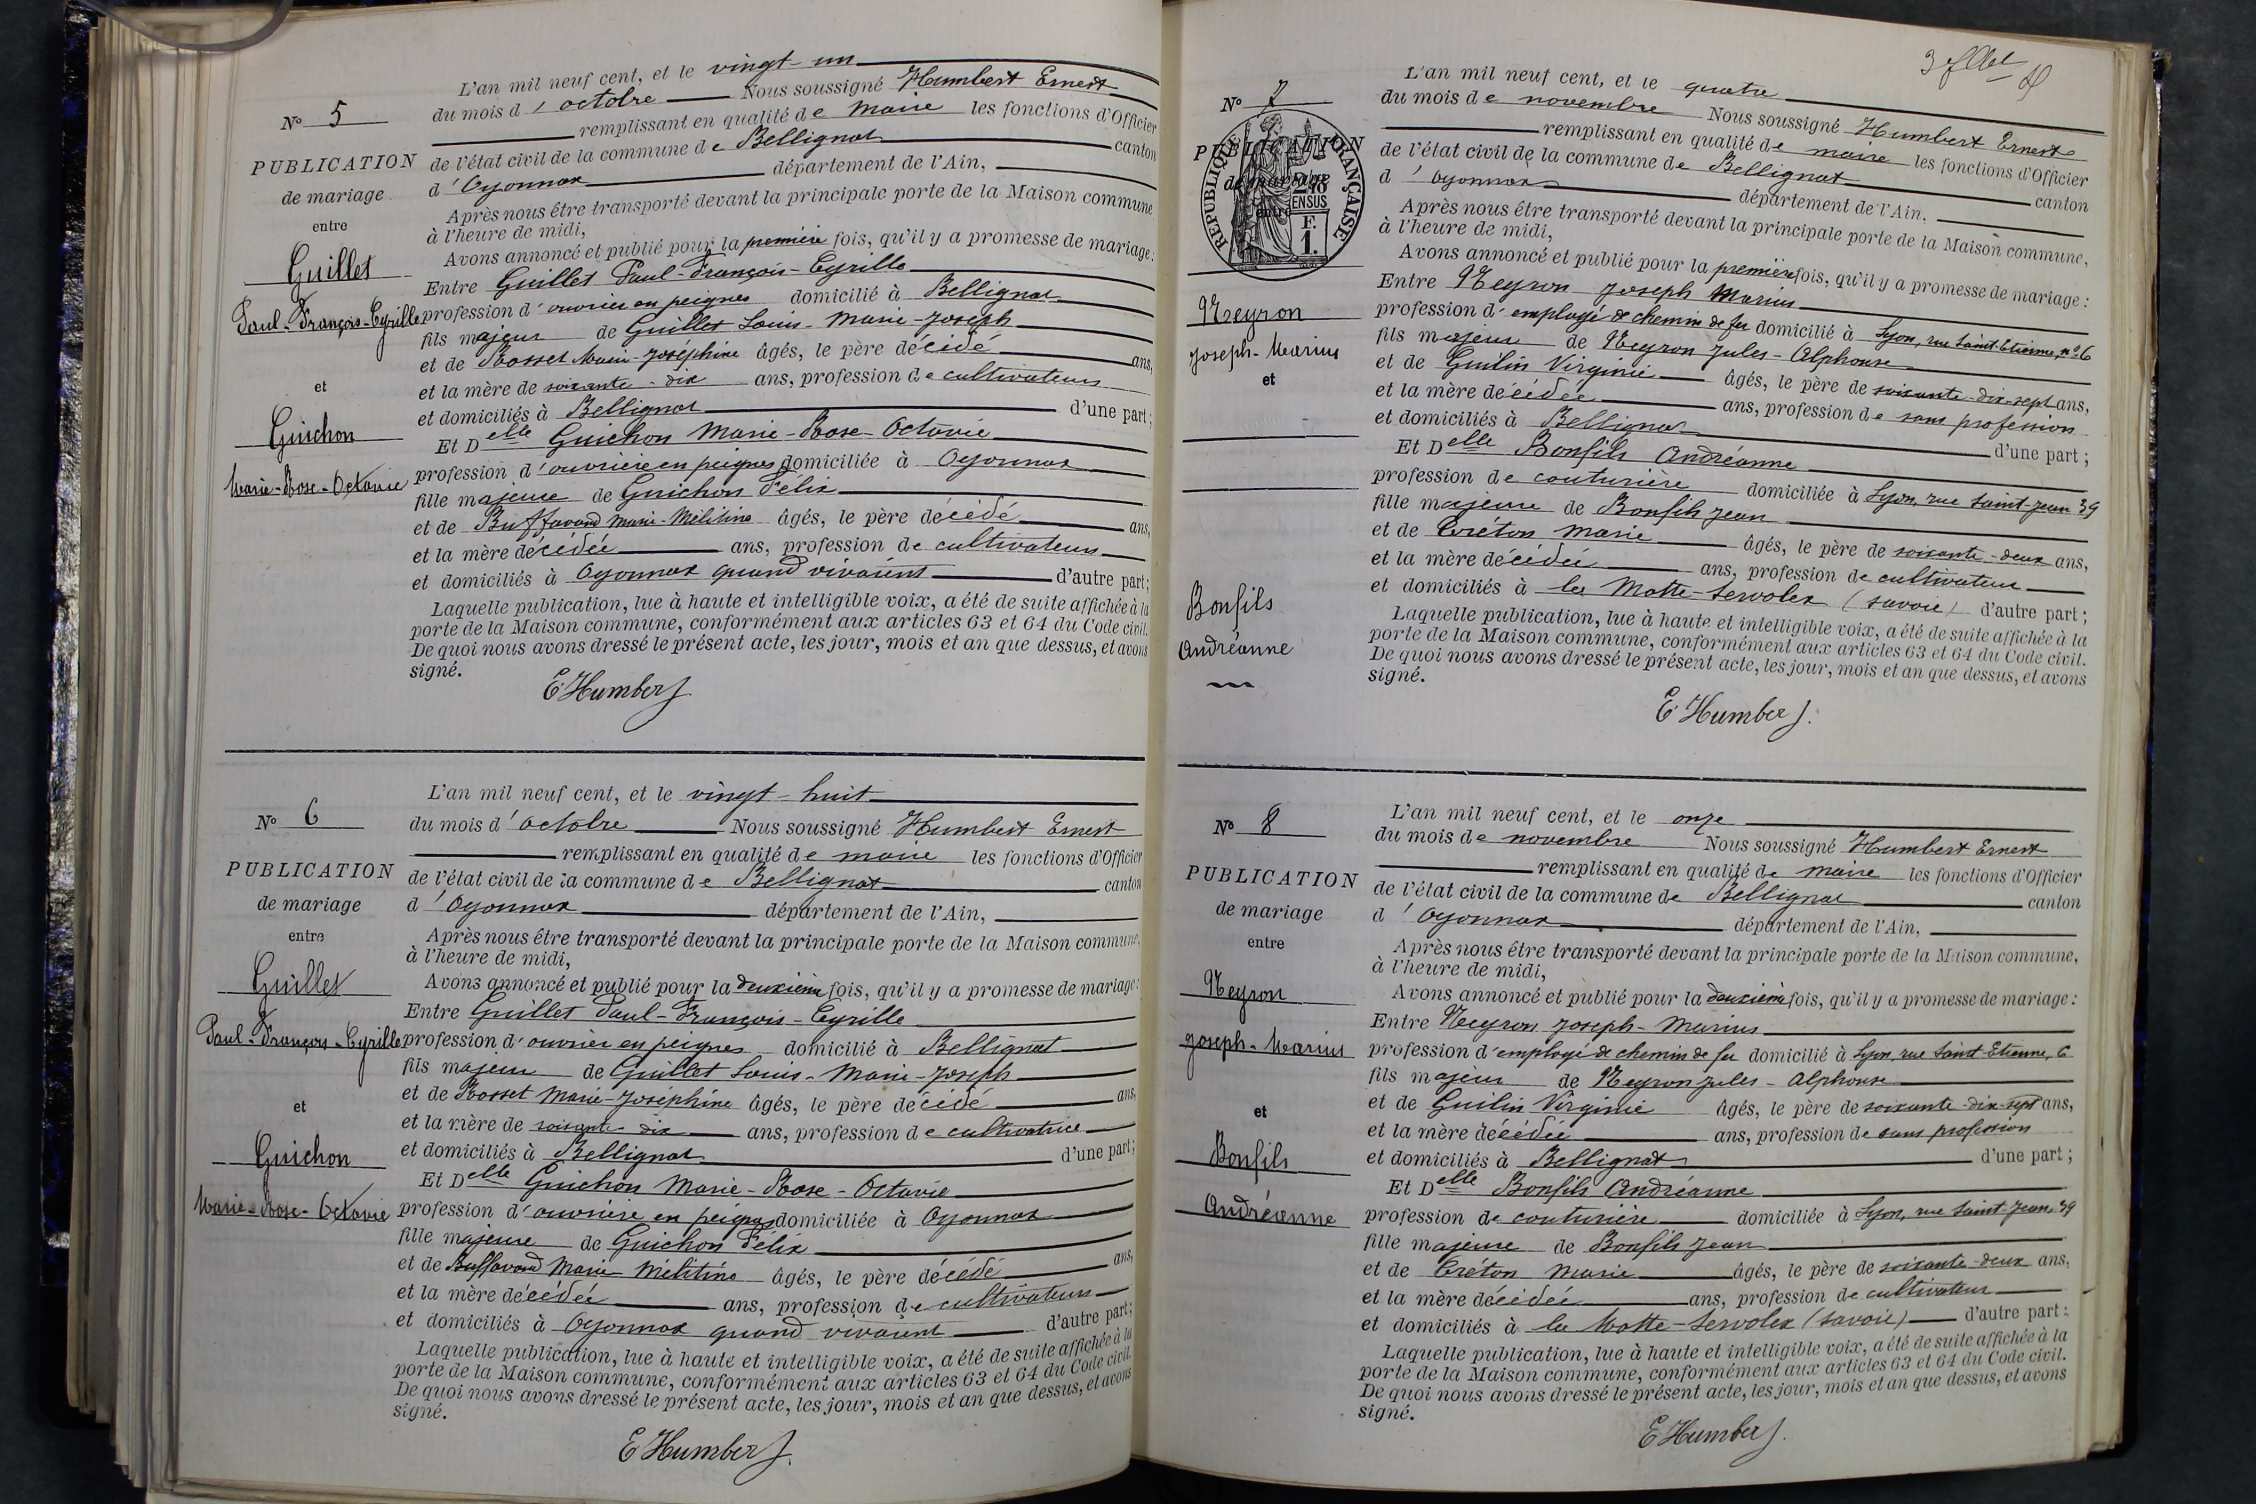 N° 5
PUBLICATION
de mariage
entre
Guillet
Paul-François-Cyrille
et
Guichon
Marie-Rose-Octavie
L'an mil neuf cent, et le vingt-un
du mois d'octobre Nous soussigné Humbert Ernest
remplissant en qualité de maire les fonctions d'Officier
de l'état civil de la commune de Bellignat canton
d'Oyonnax département de l'Ain,
Après nous être transporté devant la principale porte de la Maison commune
à l'heure de midi,
Avons annoncé et publié pour la première fois, qu'il y a promesse de mariage:
Entre Guillet Paul-François-Cyrille
profession d'ouvrier en peignes domicilié à Bellignat
fils majeur de Guillet Louis-Marie-Joseph
et de Rosset Marie-Joséphine âgés, le père décédé ans,
et la mère de soixante-dix ans, profession de cultivateurs
et domiciliés à Bellignat d'une part;
Et Delle Guichon Marie-Rose-Octavie
profession d'ouvrière en peignes domiciliée à Oyonnax
fille majeure de Guichon Félix
et de Buffavand Marie-Mélitine âgés, le père décédé ans,
et la mère décédée ans, profession de cultivateurs
et domiciliés à Oyonnax quand vivaient d'autre part;
Laquelle publication, lue à haute et intelligible voix, a été de suite affichée à la
porte de la Maison commune, conformément aux articles 63 et 64 du Code civil.
De quoi nous avons dressé le présent acte, les jour, mois et an que dessus, et avons
signé.
E. Humbert
N° 6
PUBLICATION
de mariage
entre
Guillet
Paul-François-Cyrille
et
Guichon
Marie-Rose-Octavie
L'an mil neuf cent, et le vingt-huit
du mois d'octobre Nous soussigné Humbert Ernest
remplissant en qualité de maire les fonctions d'Officier
de l'état civil de la commune de Bellignat canton
d'Oyonnax département de l'Ain,
Après nous être transporté devant la principale porte de la Maison commune,
à l'heure de midi,
Avons annoncé et publié pour la deuxième fois, qu'il y a promesse de mariage:
Entre Guillet Paul-François-Cyrille
profession d'ouvrier en peignes domicilié à Bellignat
fils majeur de Guillet Louis-Marie-Joseph
et de Rosset Marie-Joséphine âgés, le père décédé ans,
et la mère de soixante-dix ans, profession de cultivatrice
et domiciliés à Bellignat d'une part;
Et Delle Guichon Marie-Rose-Octavie
profession d'ouvrière en peignes domiciliée à Oyonnax
fille majeure de Guichon Félix
et de Buffavand Marie Mélitine âgés, le père décédé ans,
et la mère décédée ans, profession de cultivateurs
et domiciliés à Oyonnax quand vivaient d'autre part;
Laquelle publication, lue à haute et intelligible voix, a été de suite affichée à la
porte de la Maison commune, conformément aux articles 63 et 64 du Code civil.
De quoi nous avons dressé le présent acte, les jour, mois et an que dessus, et avons
signé.
E Humbert
N° 7
PUBLICATION
de mariage
entre
RÉPUBLIQUE FRANÇAISE
EN SUS
F.
1.
Neyron
Joseph-Marius
et
Bonfils
Andréanne
L'an mil neuf cent, et le quatre
du mois de novembre Nous soussigné Humbert Ernest
remplissant en qualité de maire les fonctions d'Officier
de l'état civil de la commune de Bellignat canton
d'Oyonnax département de l'Ain,
Après nous être transporté devant la principale porte de la Maison commune,
à l'heure de midi,
Avons annoncé et publié pour la première fois, qu'il y a promesse de mariage:
Entre Neyron Joseph Marius
profession d'employé de chemin de fer domicilié à Lyon, rue Saint-Etienne, n° 6
fils majeur de Neyron Jules-Alphonse
et de Guilin Virginie âgés, le père de soixante-dix-sept ans,
et la mère décédée ans, profession de sans profession
et domiciliés à Bellignat d'une part;
Et Delle Bonfils Andréanne
profession de couturière domiciliée à Lyon, rue Saint-Jean 39
fille majeure de Bonfils Jean
et de Créton Marie âgés, le père de soixante-deux ans,
et la mère décédée ans, profession de cultivateur
et domiciliés à la Motte-Servolex (Savoie) d'autre part;
Laquelle publication, lue à haute et intelligible voix, a été de suite affichée à la
porte de la Maison commune, conformément aux articles 63 et 64 du Code civil.
De quoi nous avons dressé le présent acte, les jour, mois et an que dessus, et avons
signé.
E. Humbert
N° 8
PUBLICATION
de mariage
entre
Neyron
Joseph-Marius
et
Bonfils
Andréanne
L'an mil neuf cent, et le onze
du mois de novembre Nous soussigné Humbert Ernest
remplissant en qualité de maire les fonctions d'Officier
de l'état civil de la commune de Bellignat canton
d'Oyonnax département de l'Ain,
Après nous être transporté devant la principale porte de la Maison commune,
à l'heure de midi,
Avons annoncé et publié pour la deuxième fois, qu'il y a promesse de mariage:
Entre Neyron Joseph-Marius
profession d'employé de chemin de fer domicilié à Lyon, rue Saint-Etienne, 6
fils majeur de Neyron Jules-Alphonse
et de Guilin Virginie âgés, le père de soixante-dix-sept ans,
et la mère décédée ans, profession de sans profession
et domiciliés à Bellignat d'une part;
Et Delle Bonfils Andréanne
profession de couturière domiciliée à Lyon, rue Saint-Jean, 39
fille majeure de Bonfils Jean
et de Créton Marie âgés, le père de soixante-deux ans,
et la mère décédée ans, profession de cultivateur
et domiciliés à la Motte-Servolex (Savoie) d'autre part;
Laquelle publication, lue à haute et intelligible voix, a été de suite affichée à la
porte de la Maison commune, conformément aux articles 63 et 64 du Code civil.
De quoi nous avons dressé le présent acte, les jour, mois et an que dessus, et avons
signé.
E Humbert